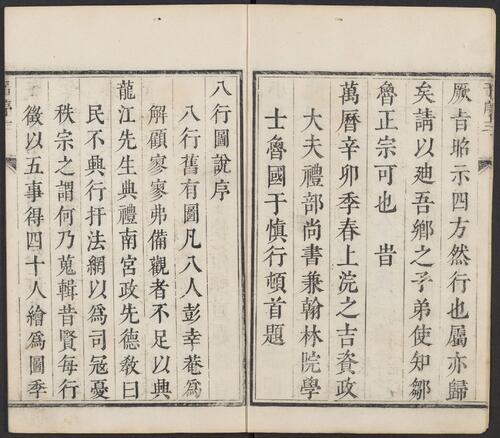 厥旨昭示四方然行也屬亦歸
矣請以廸吾鄉之子弟使知鄒
魯正宗可也 旹
萬曆辛卯季春上浣之吉資政
大夫禮部尚書兼翰林院學
士魯國于慎行頓首題
八行圖說序
八行舊有圖凡八人彭幸菴爲
解顧寥寥弗備觀者不足以興
龍江先生典禮南宮政先德教曰
民不興行扞法網以爲司寇憂
秩宗之謂何乃蒐輯昔賢每行
徵以五事得四十人繪爲圖季